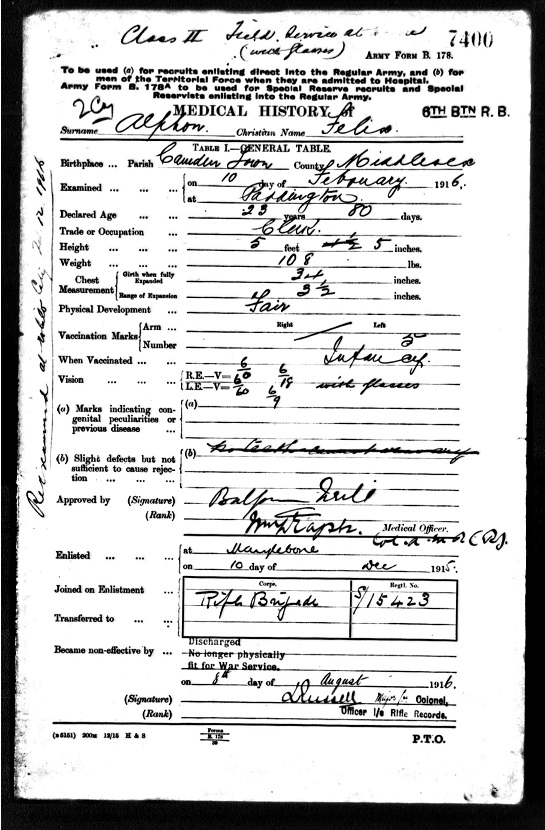 Class II Field Service at
(with glasses)
7400
ARMY FORM B. 178.
To be used (a) for recruits enlisting direct into the Regular Army, and (b) for
men of the Territorial Force when they are admitted to Hospital.
Army Form B. 178A to be used for Special Reserve recruits and Special
Reservists enlisting into the Regular Army.
MEDICAL HISTORY of
6TH BTN R. B.
Surname Alphon. Christian Name Felix
TABLE I.—GENERAL TABLE.
Birthplace ... Parish Camden Town County Middlesex
Examined ... ... ... on 10 day of February. 1916.
at Paddington
Declared Age ... ... 23 years 80 days.
Trade or Occupation ... Clerk.
Height ... ... ... 5 feet 4 1/2 5 inches.
Weight ... ... ... 108 lbs.
Chest Measurement
Girth when fully Expanded 34 inches.
Range of Expansion 3 1/2 inches.
Physical Development ... Fair
Right Left
Vaccination Marks Arm ...
Number 5
When Vaccinated ... ... Infancy
Vision ... ... ... R.E.—V= 6/60 6/18 with glasses
L.E.—V= 6/60 6/9
(a) Marks indicating con-
genital peculiarities or
previous disease ...
(a)
(b) Slight defects but not
sufficient to cause rejec-
tion ... ... ...
(b)
Approved by (Signature) Balfour Neill
(Rank)
Medical Officer.
Enlisted ... ... ... at Marylebone
on 10 day of Dec 1915.
Corps. Regtl. No.
Joined on Enlistment ... Rifle Brigade S/15423
Transferred to ... ...
Became non-effective by ... Discharged
No longer physically
fit for War Service.
on 8th day of August 1916.
(Signature) L Russell Major for Colonel,
(Rank) Officer i/c Rifle Records.
(B 5151) 200M 12/15 H & S
Forms
B. 178
P.T.O.